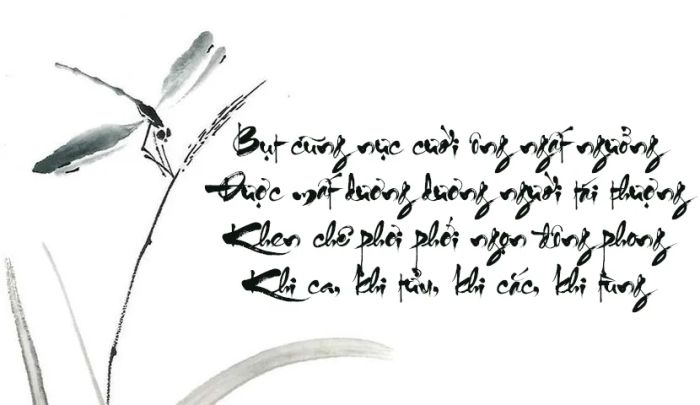 Bụt cũng nực cười ông ngất ngưởng
Được mất dương dương người tái thượng
Khen chê phơi phới ngọn đông phong
Khi ca, khi tửu, khi cắc, khi tùng